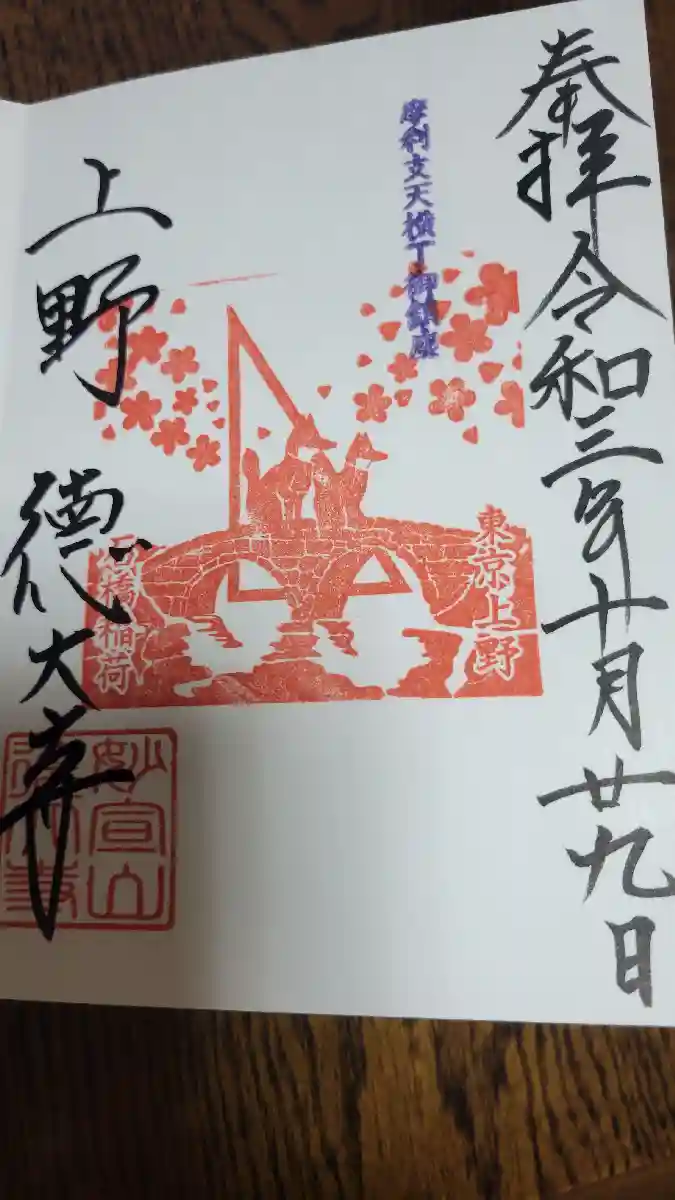 奉拝 令和三年十月廿九日
摩利支天横丁御鎮座
東京上野
石橋稲荷
上野 德大寺
妙宣山
德大寺